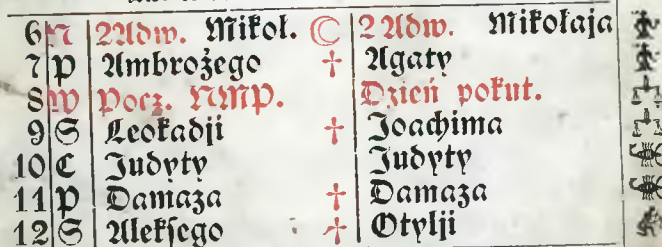 6 N 2 Adw. Mikoł. ☾ 2 Adw. Mikołaja
7 P Ambrożego † Agaty
8 W Pocz. NMP. Dzień pokut.
9 S Leokadji † Joachima
10 C Judyty Judyty
11 P Damaza † Damaza
12 S Aleksego † Otylji